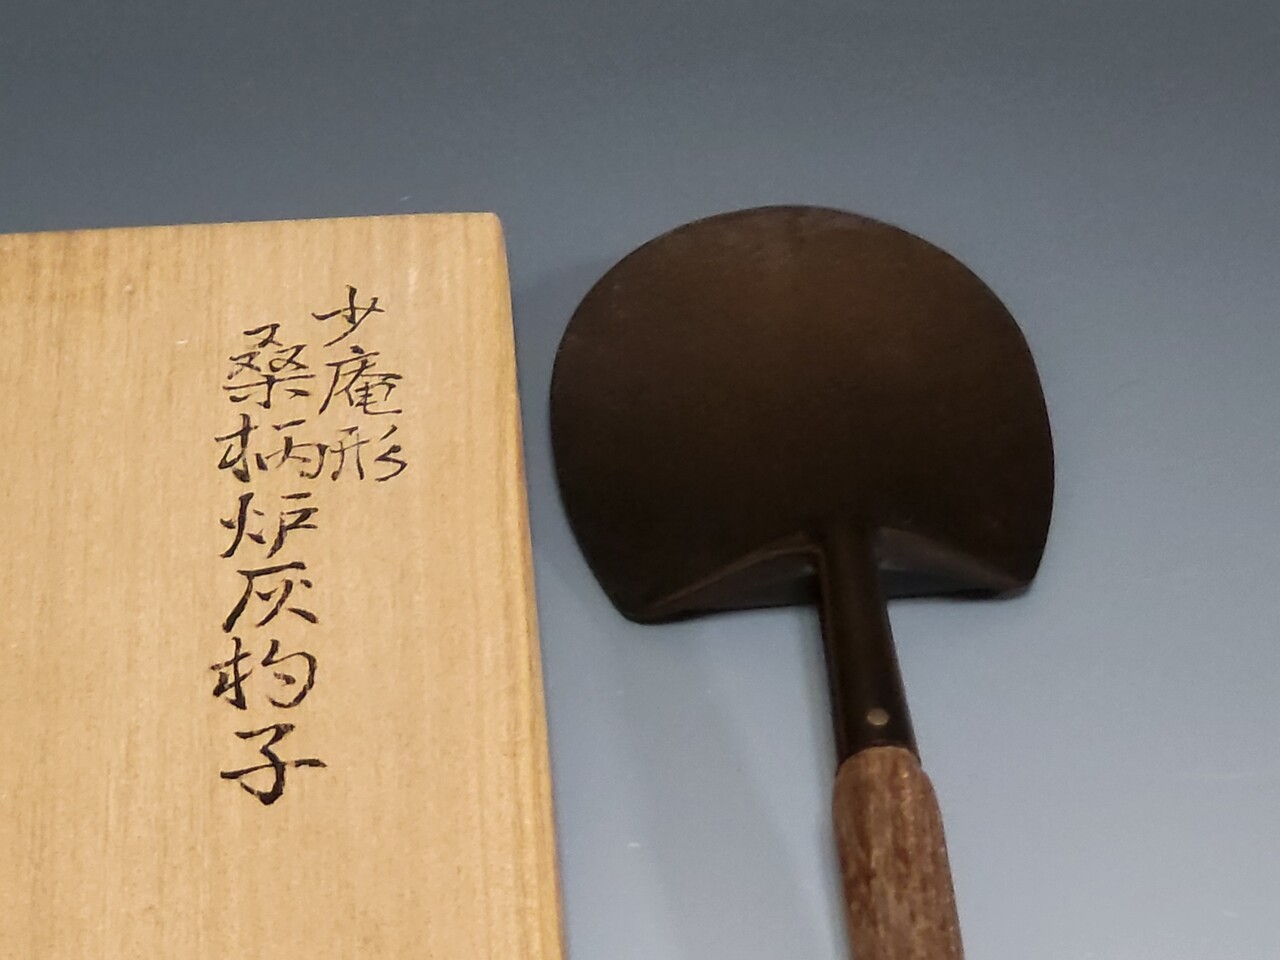 少庵形
桑柄炉灰杓子